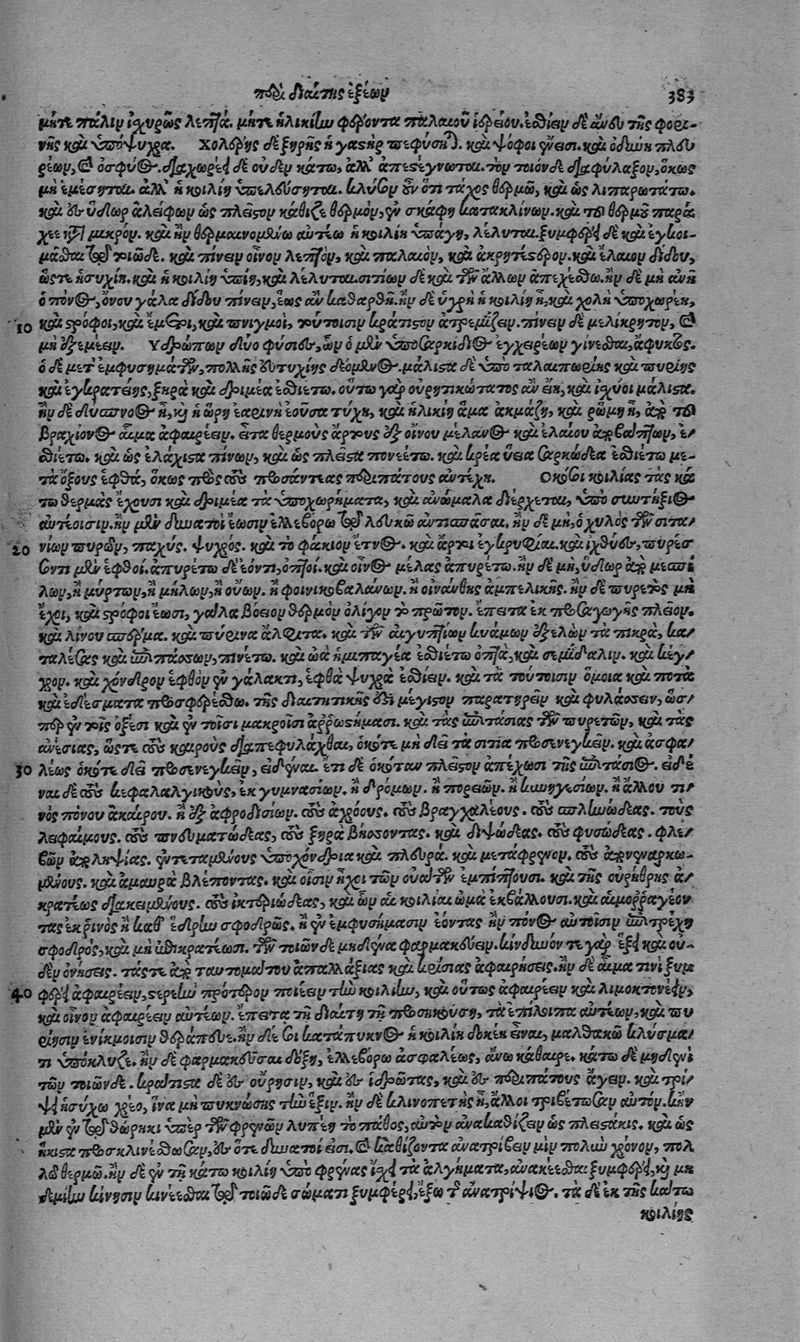 περὶ διαίτης ὀξέων 383
μήτε πάλιν ἰσχυρῶς λεπτά. μήτε ἡλικίην φέροντα παλαιοῦ ἱερείου. ἐσθίειν δὲ ἄνευ τῆς φορί-
νης καὶ ὑπόψυχρα. Χολέρης δὲ ξηρῆς ἡ γαστὴρ πεφύσηται. καὶ ψόφοι ἔνεισι. καὶ ὀδύνη πλευ
ρέων, καὶ ὀσφύος. διαχωρέει δὲ οὐδὲν κάτω, ἀλλ' ἀπεστέγνωται. τὸν τοιόνδε διαφύλαξον, ὅκως
μὴ ἐμέσηται. ἀλλ' ἡ κοιλίη ὑπελεύσηται. κλύσον οὖν ὅτι τάχος θερμῷ, καὶ ὡς λιπαρωτάτω.
καὶ ἐς ὕδωρ ἀλείφων ὡς πλεῖστον κάθιζε θερμὸν, ἐν σκάφῃ κατακλίνων. καὶ τοῦ θερμοῦ παρά
χεε κατὰ μικρόν. καὶ ἢν θερμαινομένῳ αὐτέῳ ἡ κοιλίη ὑπάγῃ, λέλυται. ξυμφέρει δὲ καὶ ἐγκοι-
μᾶσθαι τῷ τοιῷδε. καὶ πίνειν οἶνον λεπτὸν, καὶ παλαιὸν, καὶ ἀκρητέστερον. καὶ ἔλαιον δίδου,
ὥστε ἡσυχίη. καὶ ἡ κοιλίη ὑπίῃ, καὶ λέλυται. σιτίων δὲ καὶ τῶν ἄλλων ἀπεχέσθω. ἢν δὲ μὴ ἀνῇ
ὁ πόνος, ὄνου γάλα δίδου πίνειν, ἕως ἂν καθαρθῇ. ἢν δὲ ὑγρὴ ἡ κοιλίη ῃ, καὶ χολὴ ὑποχωρέῃ,
10 καὶ στρόφοι, καὶ ἔμετοι, καὶ πνιγμοὶ, τούτοισιν κράτιστον ἀτρεμίζειν. πίνειν δὲ μελίκρητον, καὶ
μὴ ἐξεμέειν. Υδρώπων δύο φύσιες, ὧν ὁ μὲν ὑποσαρκίδιος ἐγχειρέων γίνεσθαι, ἄφυκτος.
ὁ δὲ μετ' ἐμφυσημάτων, πολλῆς εὐτυχίης δεόμενος. μάλιστα δὲ ὑπὸ ταλαιπωρίης καὶ πυρίης
καὶ ἐγκρατείης, ξηρὰ καὶ δριμέα ἐσθιέτω. οὕτω γὰρ οὐρητικώτατος ἂν εἴη, καὶ ἰσχύοι μάλιστα.
ἢν δὲ δύσπνοος ᾖ, καὶ ἡ ὥρη ἐαρινὴ ἐοῦσα τύχῃ, καὶ ἡλικίῃ ἅμα ἀκμάζῃ, καὶ ῥώμη ῇ, ἀπὸ τοῦ
βραχίονος αἷμα ἀφαιρέειν. εἶτα θερμοὺς ἄρτους ἐξ οἴνου μέλανος καὶ ἐλαίου ἀποβάπτων, ἐ-
σθιέτω. καὶ ὡς ἐλάχιστα πίνων, καὶ ὡς πλεῖστα πονείτω. καὶ κρέα ὕεια σαρκώδεα ἐσθιέτω με-
τὰ ὄξους ἑφθὰ, ὅκως πρὸς τοὺς προσάντεας περιπάτους ἀντέχῃ. Ὁκόσοι κοιλίας τὰς κά
τω θερμὰς ἔχουσι καὶ δριμέα τὰ ὑποχωρήματα, καὶ ἀνώμαλα διέρχεται, ὑπὸ συντήξιος
αὐτέοισιν. ἢν μὲν δυνατοὶ ἔωσιν ἑλλεβόρῳ τῷ λευκῷ ἀντισπάσαι, ἢν δὲ μὴ, ὁ χυλὸς τῶν σιτα-
20 νίων πυρῶν, παχύς. ψυχρός. καὶ τὸ φάκιον ἔτνος. καὶ ἄρτοι ἐγκρυφίαι. καὶ ἰχθύες, πυρέσ
σοντι μὲν ἑφθοὶ. ἀπυρέτῳ δὲ ἐόντι, ὀπτοί. καὶ οἶνος μέλας ἀπυρέτῳ. ἢν δὲ μὴ, ὕδωρ ἀπὸ μεσπί
λων, ἢ μύρτων, ἢ μήλων, ἢ οὔων. ἢ φοινικοβαλάνων. ἢ οἰνάνθης ἀμπελικῆς. ἢν δὲ πυρετὸς μὴ
ἔχοι, καὶ στρόφοι ἔωσι, γάλα βόειον θερμὸν ὀλίγον τὸ πρῶτον. ἔπειτα ἐκ προσαγωγῆς πλέιον.
καὶ λίνου σπέρμα. καὶ πύρινα ἄλφιτα. καὶ τῶν αἰγυπτίων κυάμων ἐξελὼν τὰ πικρὰ, κα-
ταλέξας καὶ ἐπιπάσσων, πινέτω. καὶ ὠὰ ἡμιπαγέα ἐσθιέτω ὀπτὰ, καὶ σεμίδαλιν. καὶ κέγ-
χρον. καὶ χόνδρον ἑφθὸν ἐν γάλακτι, ἑφθὰ ψυχρὰ ἐσθίειν. καὶ τὰ τούτοισιν ὅμοια καὶ ποτὰ
καὶ ἐδέσματα προσφερέσθω. τῆς διαιτητικῆς ἐστὶ μέγιστον παρατηρεῖν καὶ φυλάσσειν, ὥσ-
περ ἐν τοῖς ὀξέσι καὶ ἐν τοῖσι μακροῖσι ἀρρωστήμασι. καὶ τὰς ἐπιτάσιας τῶν πυρετῶν, καὶ τὰς
ἀνέσιας, ὥστε τοὺς καιροὺς διαπεφυλάχθαι, ὁκότε μὴ δεῖ τὰ σιτία προσενεγκεῖν. καὶ ἀσφα-
30 λέως ὁκότε δεῖ προσενεγκεῖν, εἰδέναι. ἔτι δὲ ὁκόταν πλεῖστον ἀπέχωσι τῆς ἐπιτάσιος. εἰδέ
ναι δὲ τοὺς κεφαλαλγικοὺς, ἐκ γυμνασίων. ἢ δρόμων. ἢ πορειῶν. ἢ κυνηγεσίων. ἢ ἄλλου τι-
νὸς πόνου ἀκαίρου. ἢ ἐξ ἀφροδισίων. τοὺς ἀχρόους. τοὺς βραγχαλέους. τοὺς σπληνώδεας. τοὺς
λειφαίμους. τοὺς πνευματώδεας, τοὺς ξηρὰ βήσσοντας. καὶ διψώδεας. τοὺς φυσώδεας. φλε-
βῶν ἀπολήψιας. ἐντεταμένους ὑποχόνδρια καὶ πλευρά. καὶ μετάφρενον. τοὺς ἀπονεναρκω-
μένους. καὶ ἀμαυρὰ βλέποντας. καὶ οἷσιν ἦχοι τῶν οὐάτων ἐμπίπτουσι. καὶ τῆς οὐρήθρης ἀ-
κρατέως διακειμένους. τοὺς ἰκτεριώδεας, καὶ ὧν αἱ κοιλίαι ὠμὰ ἐκβάλλουσι. καὶ αἱμορραγέον
τας ἐκ ῥινὸς ἢ καθ' ἕδρην σφοδρῶς. ἢ ἐν ἐμφυσήμασιν ἐόντας ἢν πόνος αὐτοῖσιν ἐπιτρέχῃ
σφοδρὸς, καὶ μὴ ἐπικρατέωσι. τῶν τοιῶνδε μηδένα φαρμακεύειν. κίνδυνόν τε γὰρ ἕξει καὶ οὐ-
δὲν ὀνήσεις. τάς τε ἀπὸ ταυτομάτου ἀπαλλάξιας καὶ κρίσιας ἀφαιρήσεις. ἢν δὲ αἷμα τινὶ ξυμ
40 φέρει ἀφαιρέειν, στερεὴν πρότερον ποιέειν τὴν κοιλίην, καὶ οὕτως ἀφαιρέειν καὶ λιμοκτονέειν,
καὶ οἶνον ἀφαιρέειν αὐτέων. ἔπειτα τῇ διαίτῃ τῇ προσηκούσῃ, τὰ ἐπίλοιπα αὐτέων, καὶ πυ
ρίῃσιν ἐνίκμοισιν θεράπευε. ἢν δέ σοι κατάπυκνος ἡ κοιλίη δοκέῃ εἶναι, μαλθακῷ κλύσμα-
τι ὑπόκλυζε. ἢν δὲ φαρμακεῦσαι δόξῃ, ἑλλεβόρῳ ἀσφαλέως, ἄνω κάθαιρε. κάτω δὲ μηδενὶ
τῶν τοιῶνδε. κράτιστα δὲ ἐς οὔρησιν, καὶ ἐς ἱδρῶτας, καὶ ἐς περιπάτους ἄγειν. καὶ τρί-
ψει ἡσύχῳ χρέο, ἵνα μὴ πυκνώσῃς τὴν ἕξιν. ἢν δὲ κλινοπετὴς ῇ, ἄλλοι τριβέτωσαν αὐτόν. κἢν
μὲν ἐν τῷ θώρηκι ὑπὲρ τῶν φρενῶν λυπέῃ τὸ πάθος, αὐτὸν ἀνακαθίζειν ὡς πλειστάκις. καὶ ὡς
ἥκιστα προσκλινέσθωσαν, ἐς ὅτε δυνατοί εἰσι. καὶ καθίζοντα ἀνατρίβειν μιν πολὺν χρόνον, πολ
λῷ θερμῷ. ἢν δὲ ἐν τῇ κάτω κοιλίῃ ὑπὸ φρένας ἴσχει τὰ ἀλγήματα, ἀνακέεσθαι ξυμφέρει, καὶ μη
δεμίην κίνησιν κινέεσθαι τῷ τοιῷδε σώματι ξυμφέρει, ἔξω τῆς ἀνατρίψιος. τὰ δὲ ἐκ τῆς κάτω
κοιλίης